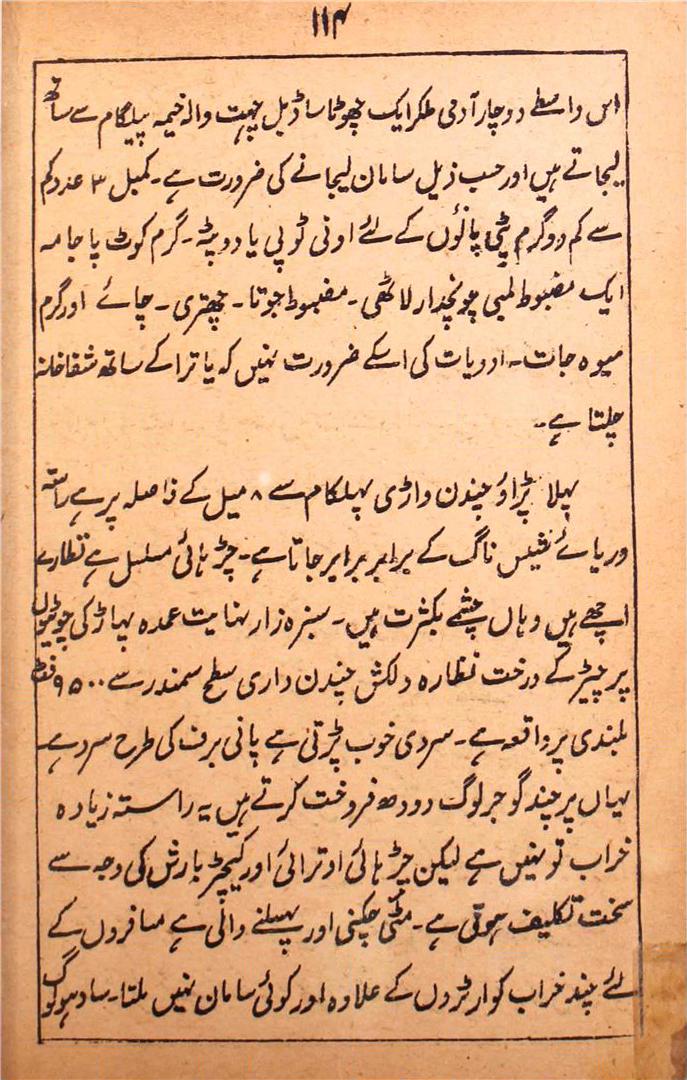 ۱۱۴
اس واسطے دو چار آدمی ملکر ایک چھوٹا سا ڈبل چھت والہ خیمہ پہلگام سے ساتھ
لیجاتے ہیں اور حسب ذیل سامان لیجانے کی ضرورت ہے۔ کمبل ۳ عدد کم
سے کم دو گرم پٹی پانؤں کے لئے اونی ٹوپی یا دوپٹہ۔ گرم کوٹ پاجامہ
ایک مضبوط لمبی چونچدار لاٹھی۔ مضبوط جوتا۔ چھتری۔ چائے اور گرم
میوہ جات۔ ادویات کی اسکے ضرورت نہیں کہ یاترا کے ساتھ شفاخانہ
چلتا ہے۔
پہلا پڑاؤ چندن واڑی پہلگام سے ۸ میل کے فاصلہ پر ہے راستہ
دریائے شیس ناگ کے برابر برابر جاتا ہے۔ چڑہائی مسلسل ہے نظارے
اچھے ہیں وہاں چشمے بکثرت ہیں۔ سبزہ زار نہایت عمدہ پہاڑ کی چوٹیوں
پر چیڑ کے درخت نظارہ دلکش چندن داری سطح سمندر سے ۹۵۰۰ فٹ
بلندی پر واقعہ ہے۔ سردی خوب پڑتی ہے پانی برف کی طرح سرد ہے
یہاں پر چند گوجر لوگ دودھ فروخت کرتے ہیں یہ راستہ زیادہ
خراب تو نہیں ہے لیکن چڑہائی اوترائی اور کیچڑ بارش کی وجہ سے
سخت تکلیف ہوتی ہے۔ مٹی چکنی اور پھسلنے والی ہے مسافروں کے
لئے چند خراب کوارٹروں کے علاوہ اور کوئی سامان نہیں ملتا۔ سادہو لوگ